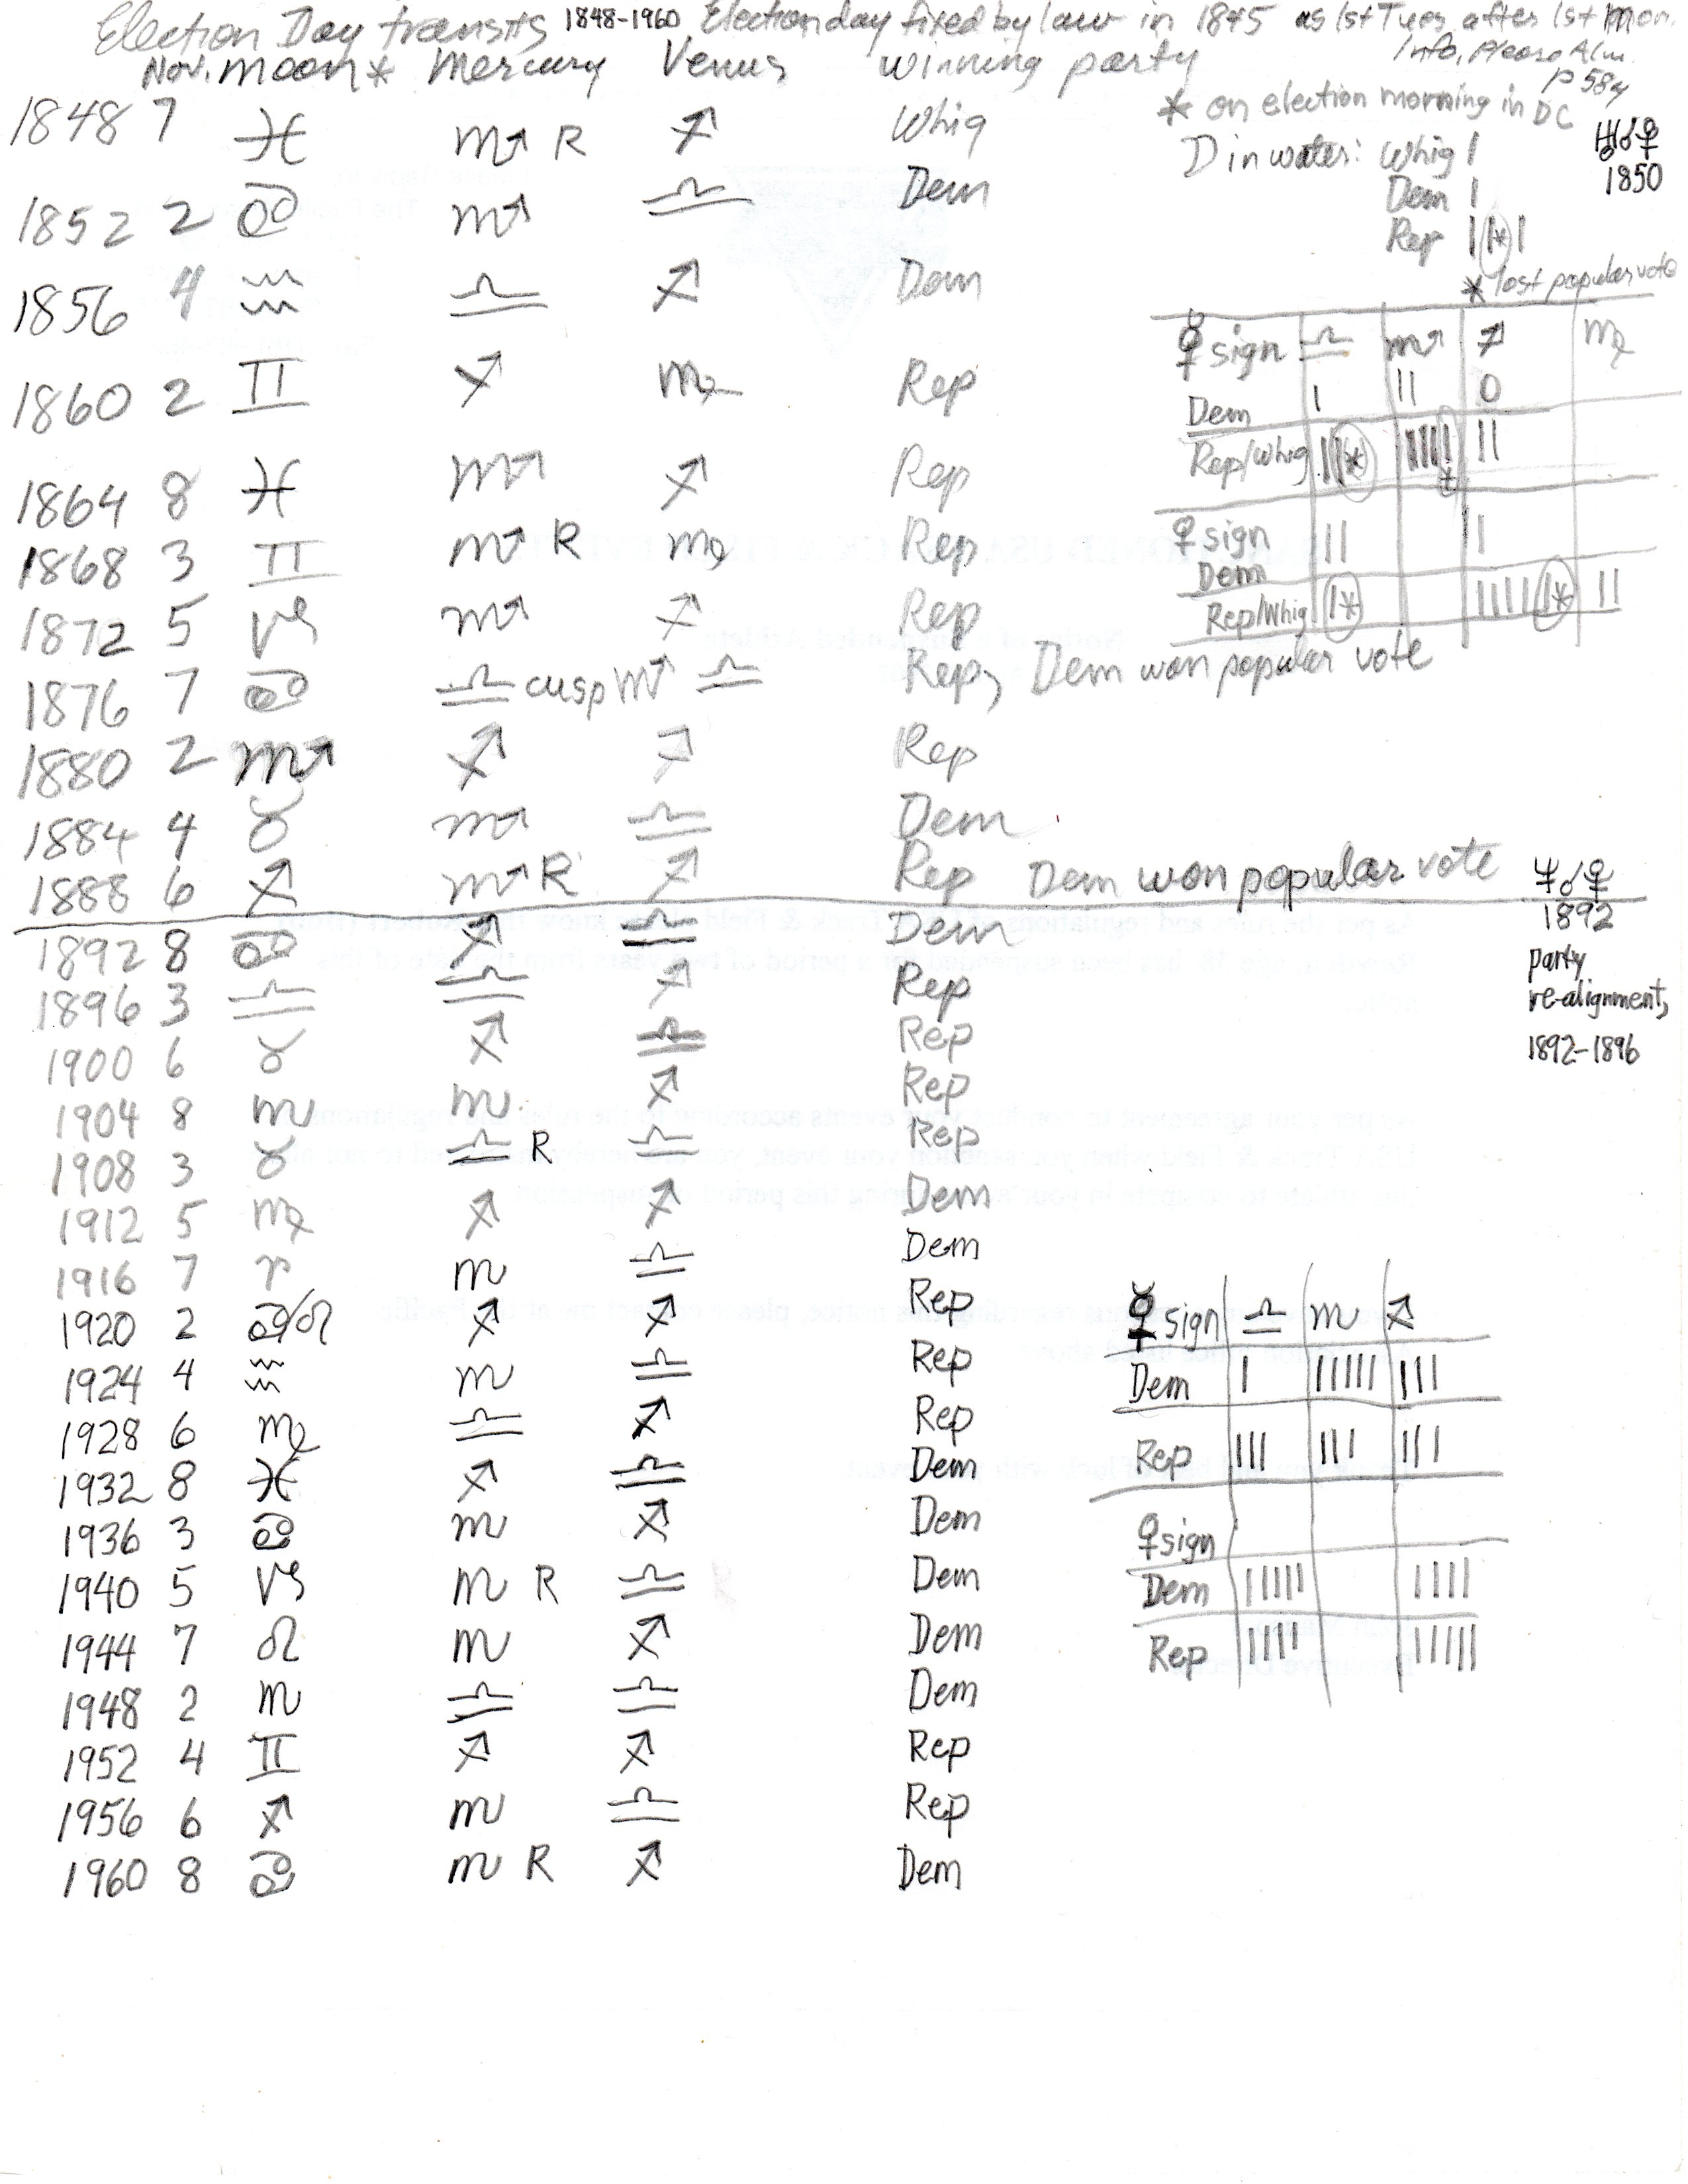 Election Day transits 1848-1960 Election day fixed by law in 1845 as 1st Tues. after 1st Mon.
Info. Please Alm. p 584
Nov. Moon* Mercury Venus Winning party
* on election morning in DC
1848 7 ♓ ♏ R ♐ Whig
☽ in water: Whig |
Dem |
Rep ||*|
* lost popular vote
♅☌♀
1850
1852 2 ♋ ♏ ♎ Dem
1856 4 ♒ ♎ ♐ Dem
1860 2 ♊ ♐ ♍ Rep
1864 8 ♓ ♏ ♐ Rep
1868 3 ♊ ♏ R ♍ Rep
1872 5 ♑ ♏ ♐ Rep
1876 7 ♋ ♎ cusp ♏ ♎ Rep, Dem won popular vote
1880 2 ♏ ♐ ♐ Rep
1884 4 ♉ ♏ ♎ Dem
1888 6 ♐ ♏ R ♐ Rep Dem won popular vote
☿ sign ♎ ♏ ♐ ♍
Dem | || 0
Rep/Whig |||* |||||* ||
♀ sign
Dem || ||
Rep/Whig |* |||||* ||
♆☌♀
1892
party
re-alignment,
1892-1896
1892 8 ♋ ♐ ♎ Dem
1896 3 ♎ ♎ ♐ Rep
1900 6 ♉ ♐ ♎ Rep
1904 8 ♏ ♏ ♐ Rep
1908 3 ♉ ♎ R ♎ Rep
1912 5 ♍ ♐ ♐ Dem
1916 7 ♈ ♏ ♎ Dem
1920 2 ♋/♌ ♐ ♐ Rep
1924 4 ♒ ♏ ♎ Rep
1928 6 ♍ ♎ ♐ Rep
1932 8 ♓ ♐ ♎ Dem
1936 3 ♋ ♏ ♐ Dem
1940 5 ♑ ♏ R ♎ Dem
1944 7 ♌ ♏ ♐ Dem
1948 2 ♏ ♎ ♎ Dem
1952 4 ♊ ♐ ♐ Rep
1956 6 ♐ ♏ ♎ Rep
1960 8 ♋ ♏ R ♐ Dem
☿ sign ♎ ♏ ♐
Dem | ||||| |||
Rep ||| ||| |||
♀ sign
Dem ||||| ||||
Rep |||| |||||